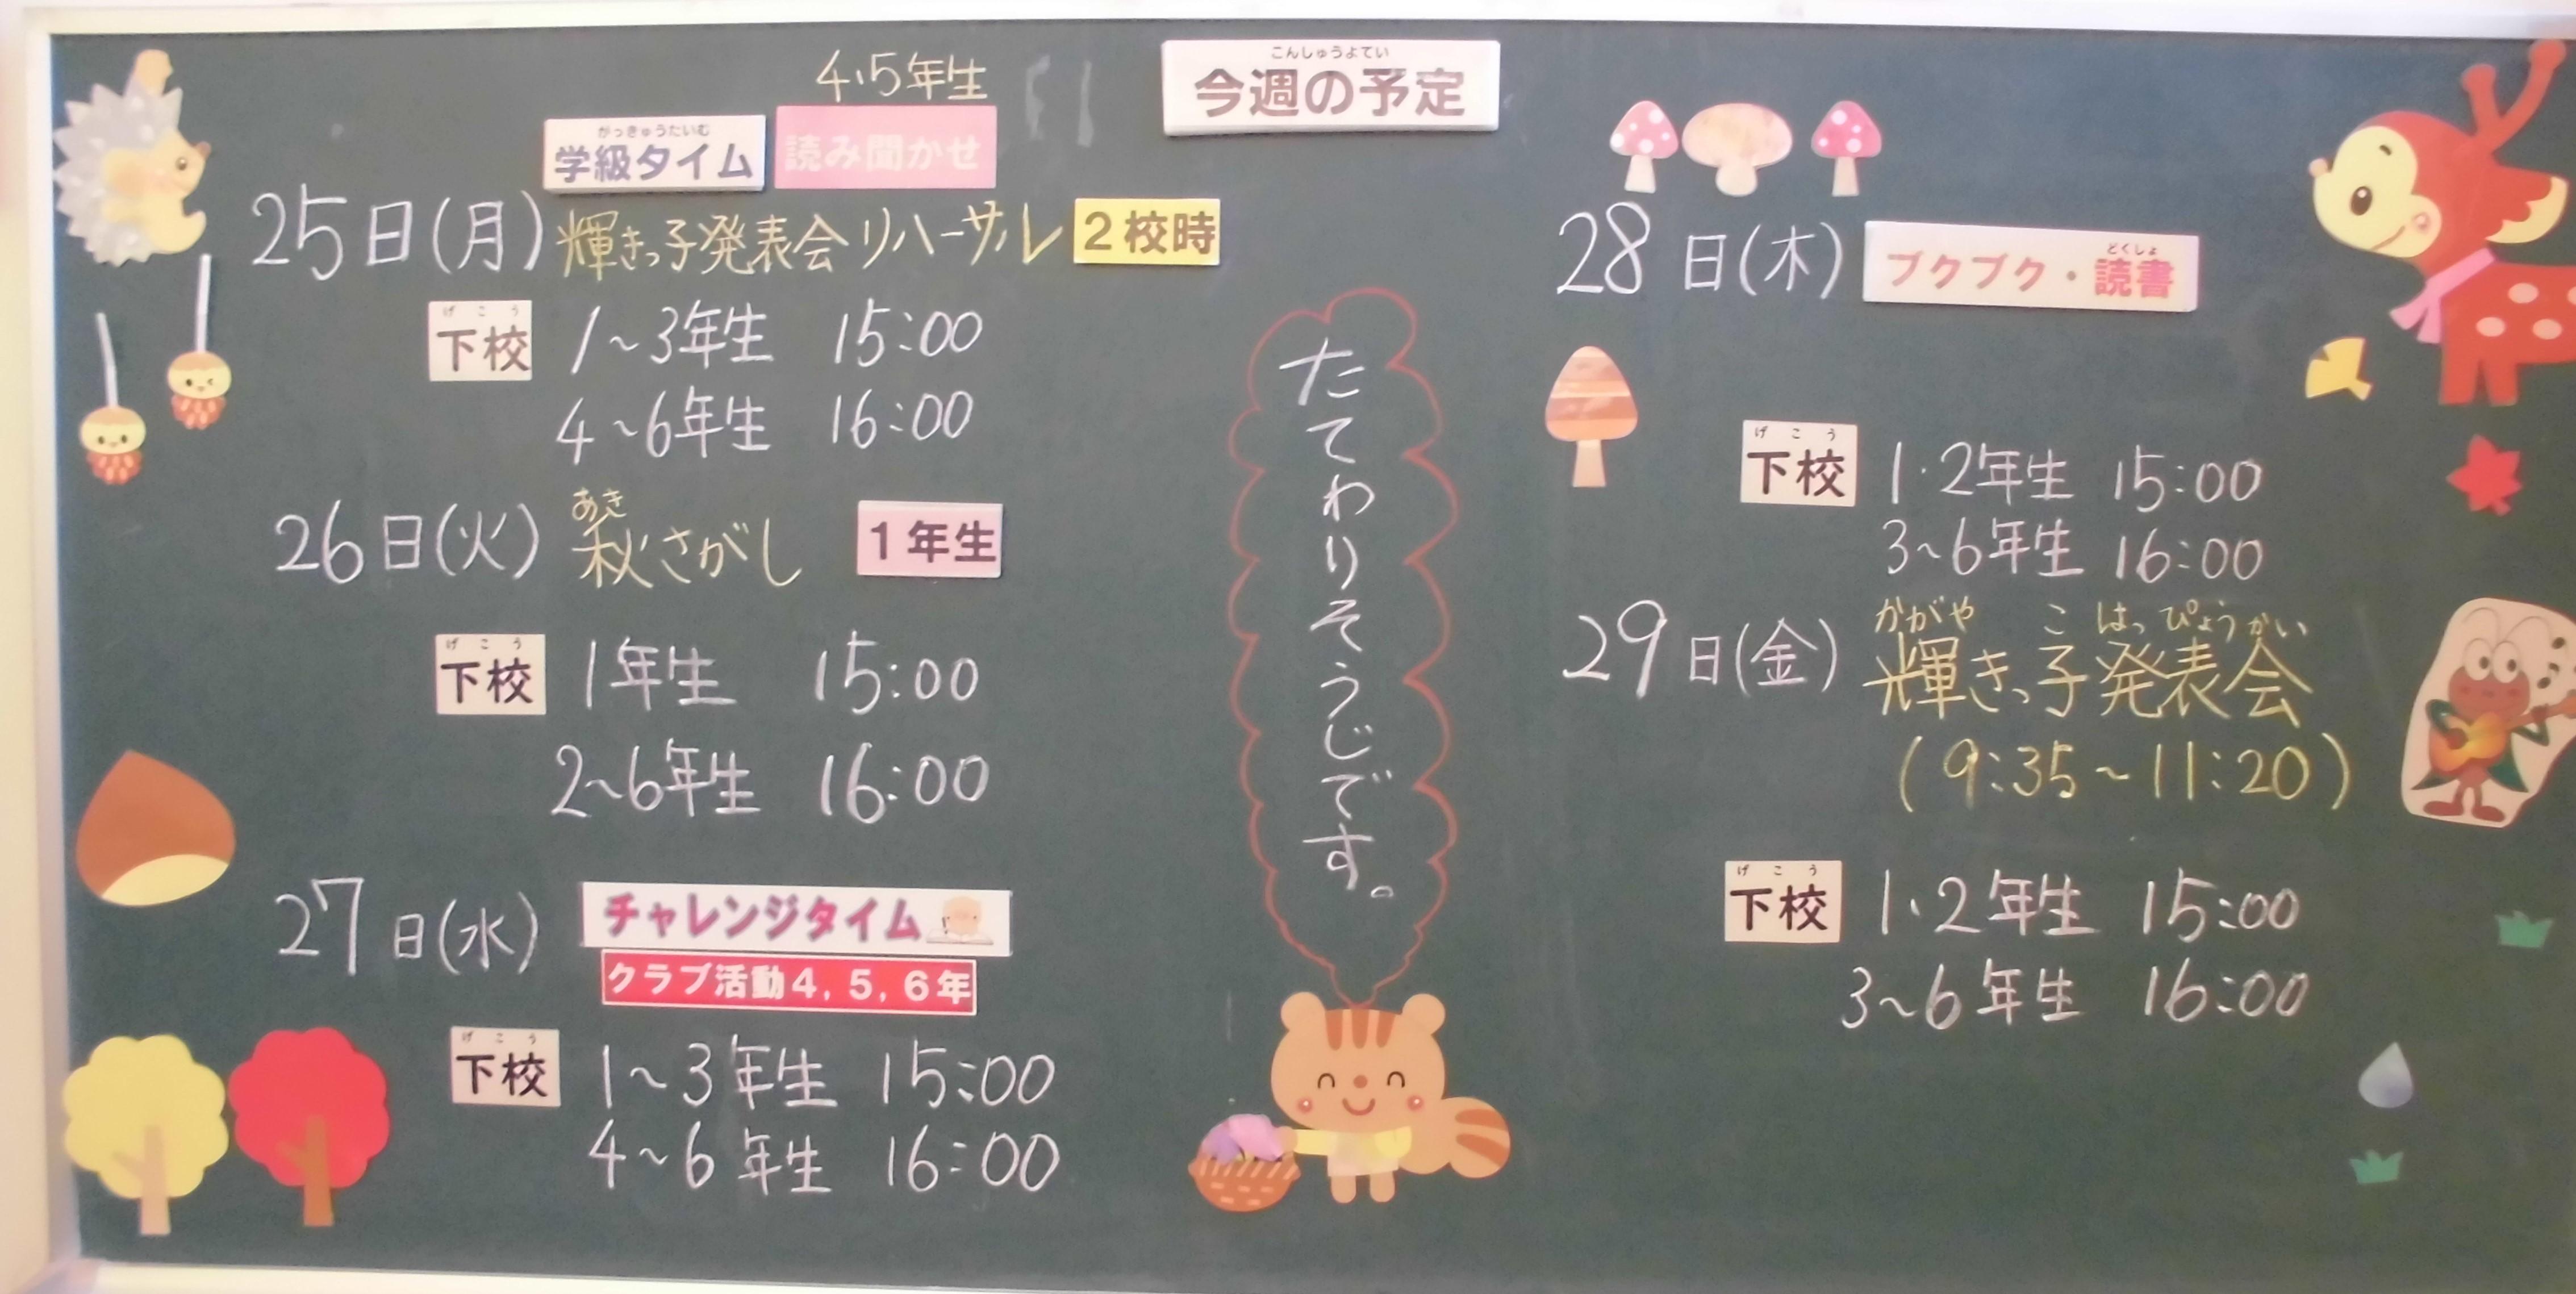 こんしゅうよてい
今週の予定
4・5年生
がっきゅうたいむ
学級タイム 読み聞かせ
25日(月) 輝きっ子発表会リハーサル 2校時
げこう
下校 1~3年生 15:00
4~6年生 16:00
あき
26日(火) 秋さがし 1年生
げこう
下校 1年生 15:00
2~6年生 16:00
27日(水) チャレンジタイム
クラブ活動4,5,6年
げこう
下校 1~3年生 15:00
4~6年生 16:00
たてわりそうじです。
どくしょ
28日(木) ブクブク・読書
げこう
下校 1・2年生 15:00
3~6年生 16:00
かがや こ はっぴょうかい
29日(金) 輝きっ子発表会
(9:35~11:20)
げこう
下校 1・2年生 15:00
3~6年生 16:00